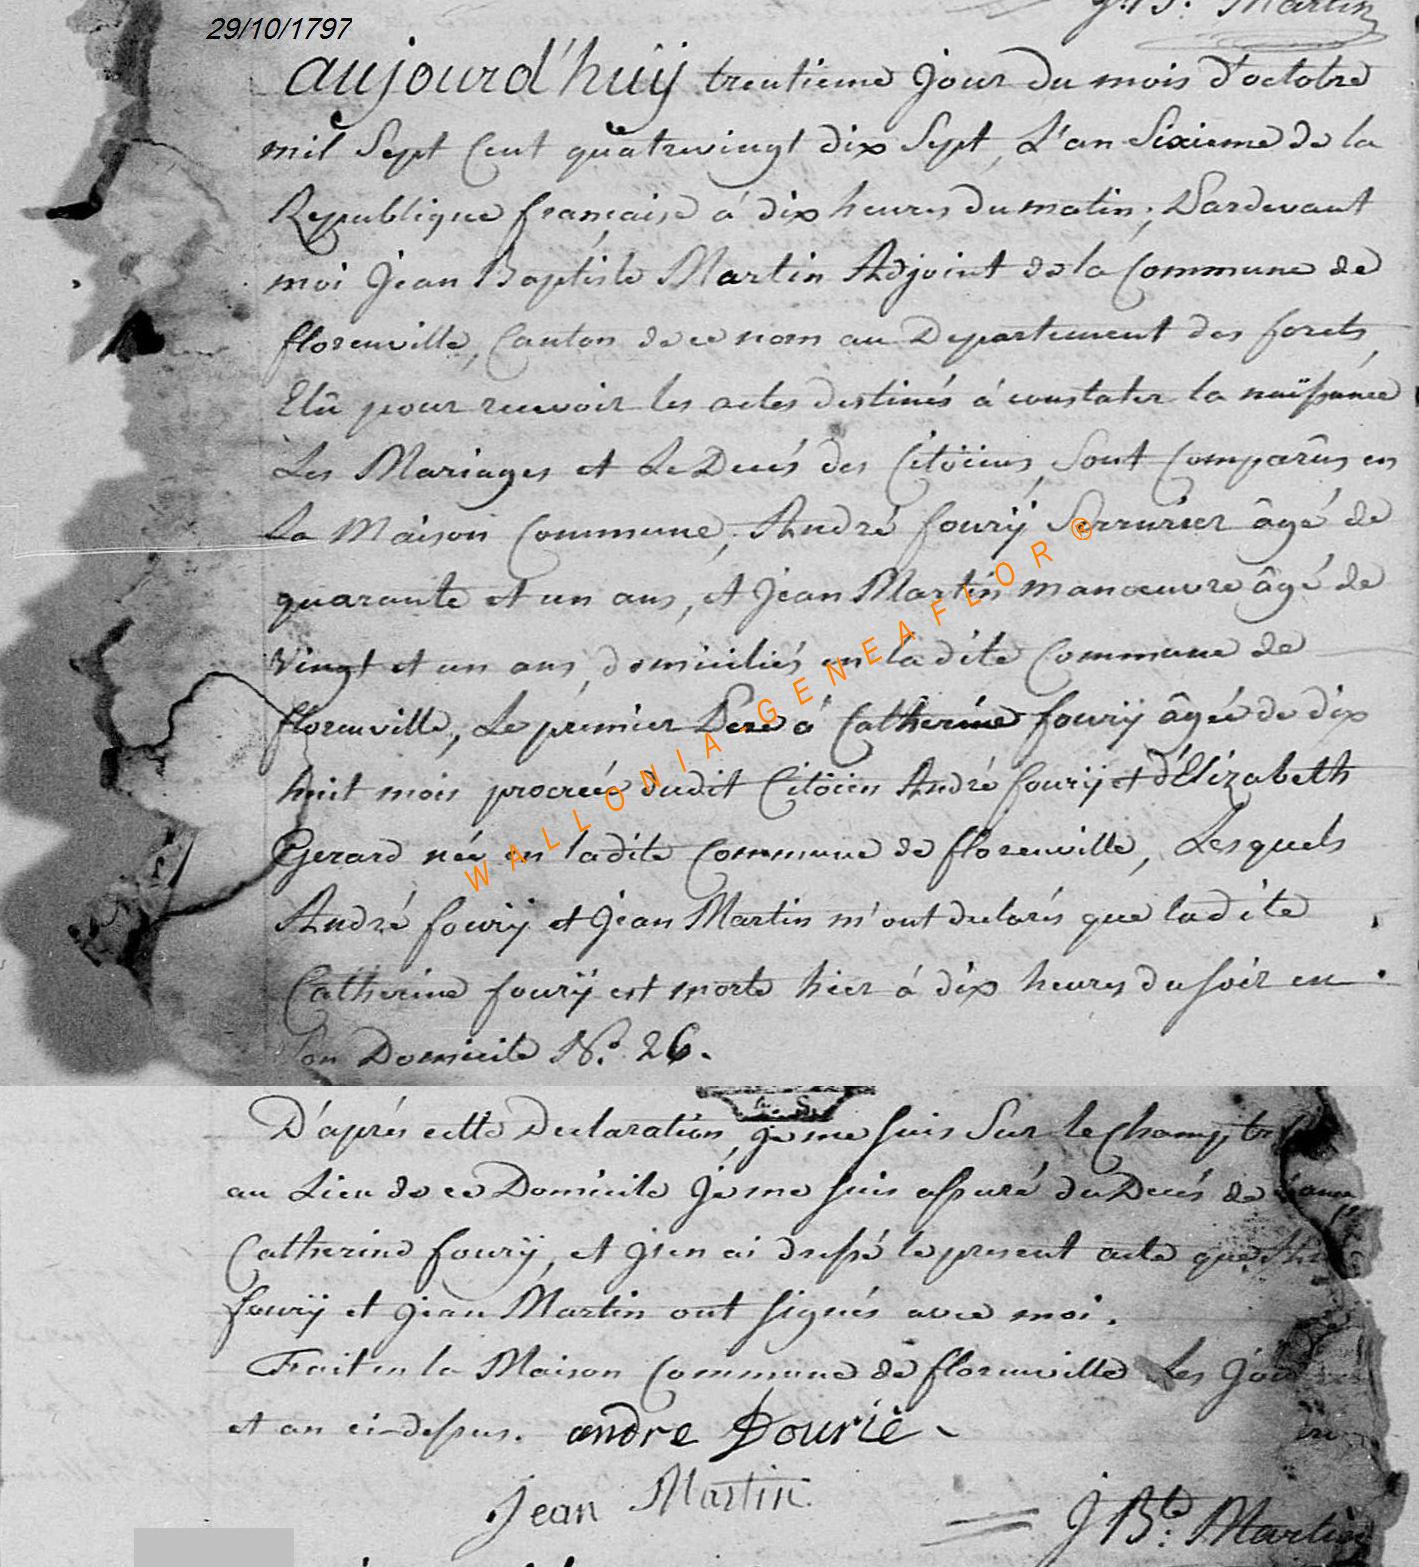 J. B. Martin
29/10/1797
aujourd'huÿ trentieme Jour du mois d'octobre
mil Sept Cent quatrevingt dix Sept, L'an Sixieme de la
Republique francaise a dix heures du matin; Pardevant
moi Jean Baptiste Martin Adjoint de la Commune de
florenville, Canton de ce nom au Departement des forets,
Elû pour recevoir les actes destinés à constater la naïssance
Les Mariages et Le Decés des Citöiens, Sont Comparûs en
La Maison Commune, André fourÿ Serrurier âgé de
quarante et un ans, et Jean Martin manœuvre âgé de
Vingt et un ans, domiciliés en ladite Commune de
florenville, Le premier Pere à Catherine fourÿ âgée de dix
huit mois procreée dudit Citöien André fourÿ et d'Elizabeth
Gerard née en ladite Commune de florenville, Lesquels
André fourÿ et Jean Martin m'ont declarés que ladite
Catherine fourÿ est morte hier á dix heures du soir en
Son Domicile N.º 26.
WALLONIA-GENEAFLOR ®
D'aprés cette Declaration, je me suis Sur le Champ
au Lieu de ce Domicile Je me suis assuré du Decés de
Catherine fourÿ, et J'en ai dressé le present acte que
fourÿ et Jean Martin ont signés avec moi.
Fait en la Maison Commune de florenville Les Jour
et an ci-dessus. andre fourie
Jean Martin
J Bte: Martin